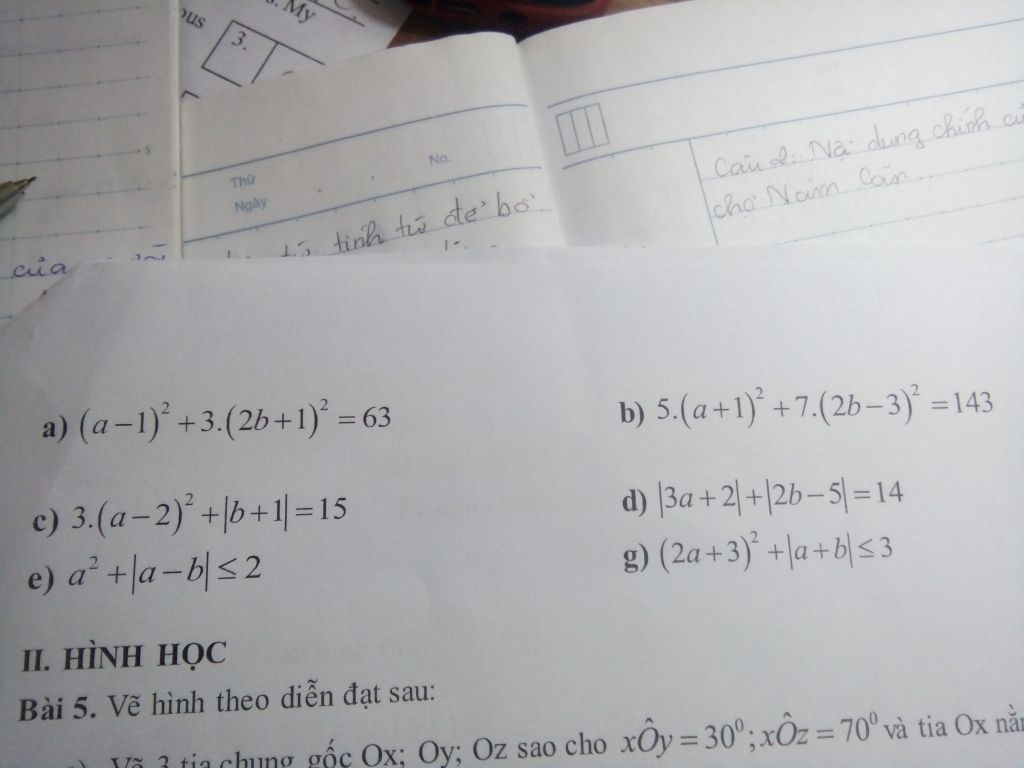 My
3.
No.
Thứ
Ngày
tính từ để bở
Câu 2: Nội dung chính củ
cho Nam Căn
của
a) (a−1)² + 3.(2b+1)² = 63
b) 5.(a+1)² + 7.(2b−3)² = 143
c) 3.(a−2)² + |b+1| = 15
d) |3a+2| + |2b−5| = 14
e) a² + |a−b| ≤ 2
g) (2a+3)² + |a+b| ≤ 3
II. HÌNH HỌC
Bài 5. Vẽ hình theo diễn đạt sau:
Vẽ 3 tia chung gốc Ox; Oy; Oz sao cho xÔy = 30⁰; xÔz = 70⁰ và tia Ox nằm